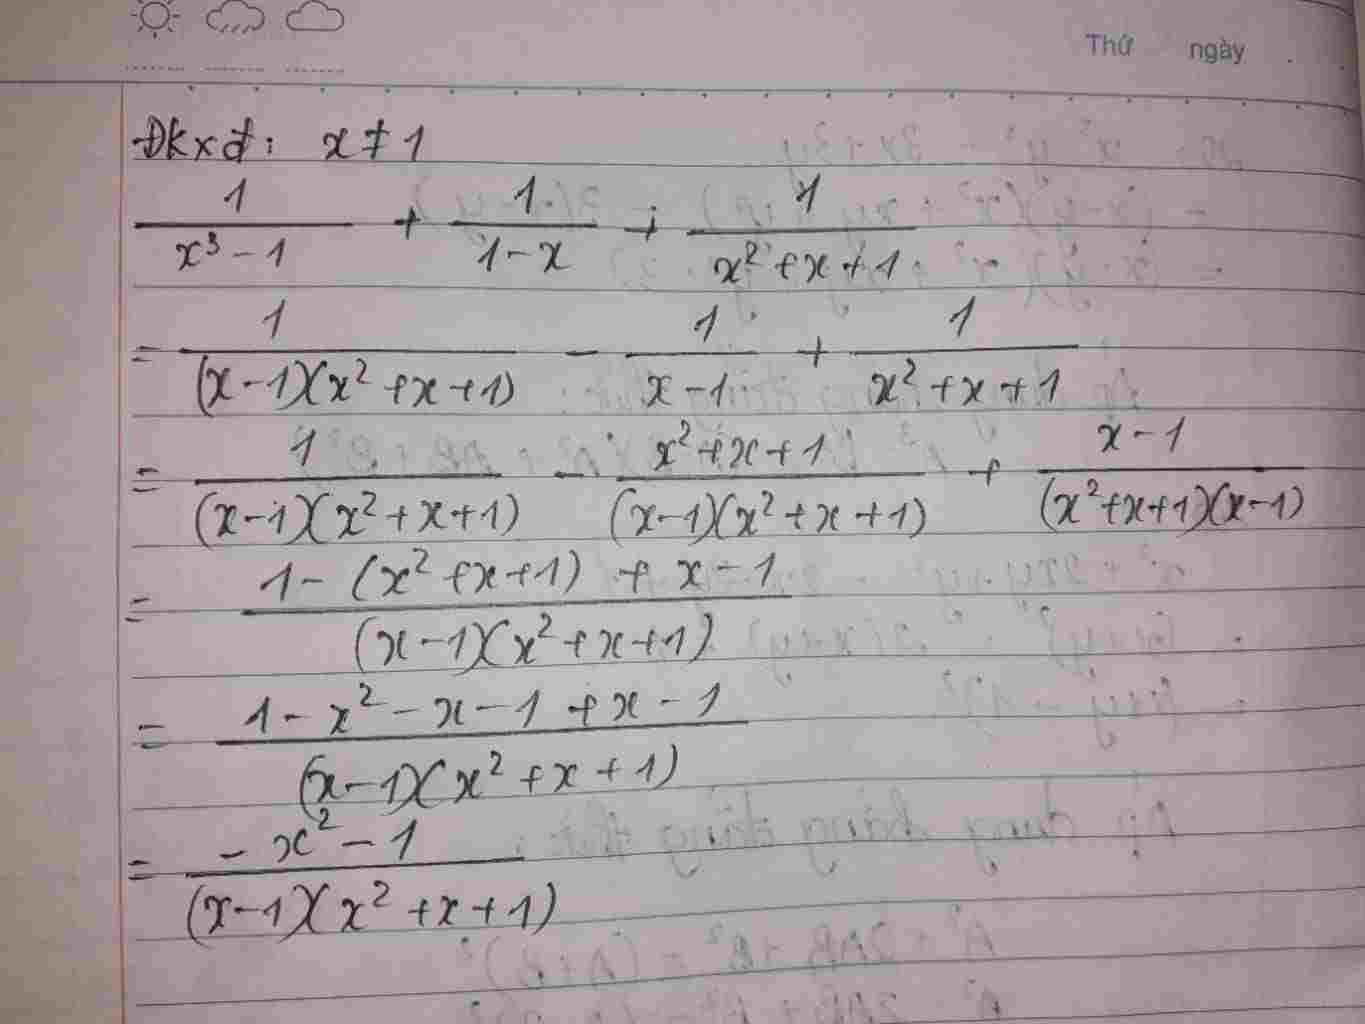 Thứ ngày
Đkxđ: x ≠ 1
\frac{1}{x³ - 1} + \frac{1}{1 - x} + \frac{1}{x² + x + 1}
= \frac{1}{(x - 1)(x² + x + 1)} - \frac{1}{x - 1} + \frac{1}{x² + x + 1}
= \frac{1}{(x - 1)(x² + x + 1)} - \frac{x² + x + 1}{(x - 1)(x² + x + 1)} + \frac{x - 1}{(x² + x + 1)(x - 1)}
= \frac{1 - (x² + x + 1) + x - 1}{(x - 1)(x² + x + 1)}
= \frac{1 - x² - x - 1 + x - 1}{(x - 1)(x² + x + 1)}
= \frac{- x² - 1}{(x - 1)(x² + x + 1)}